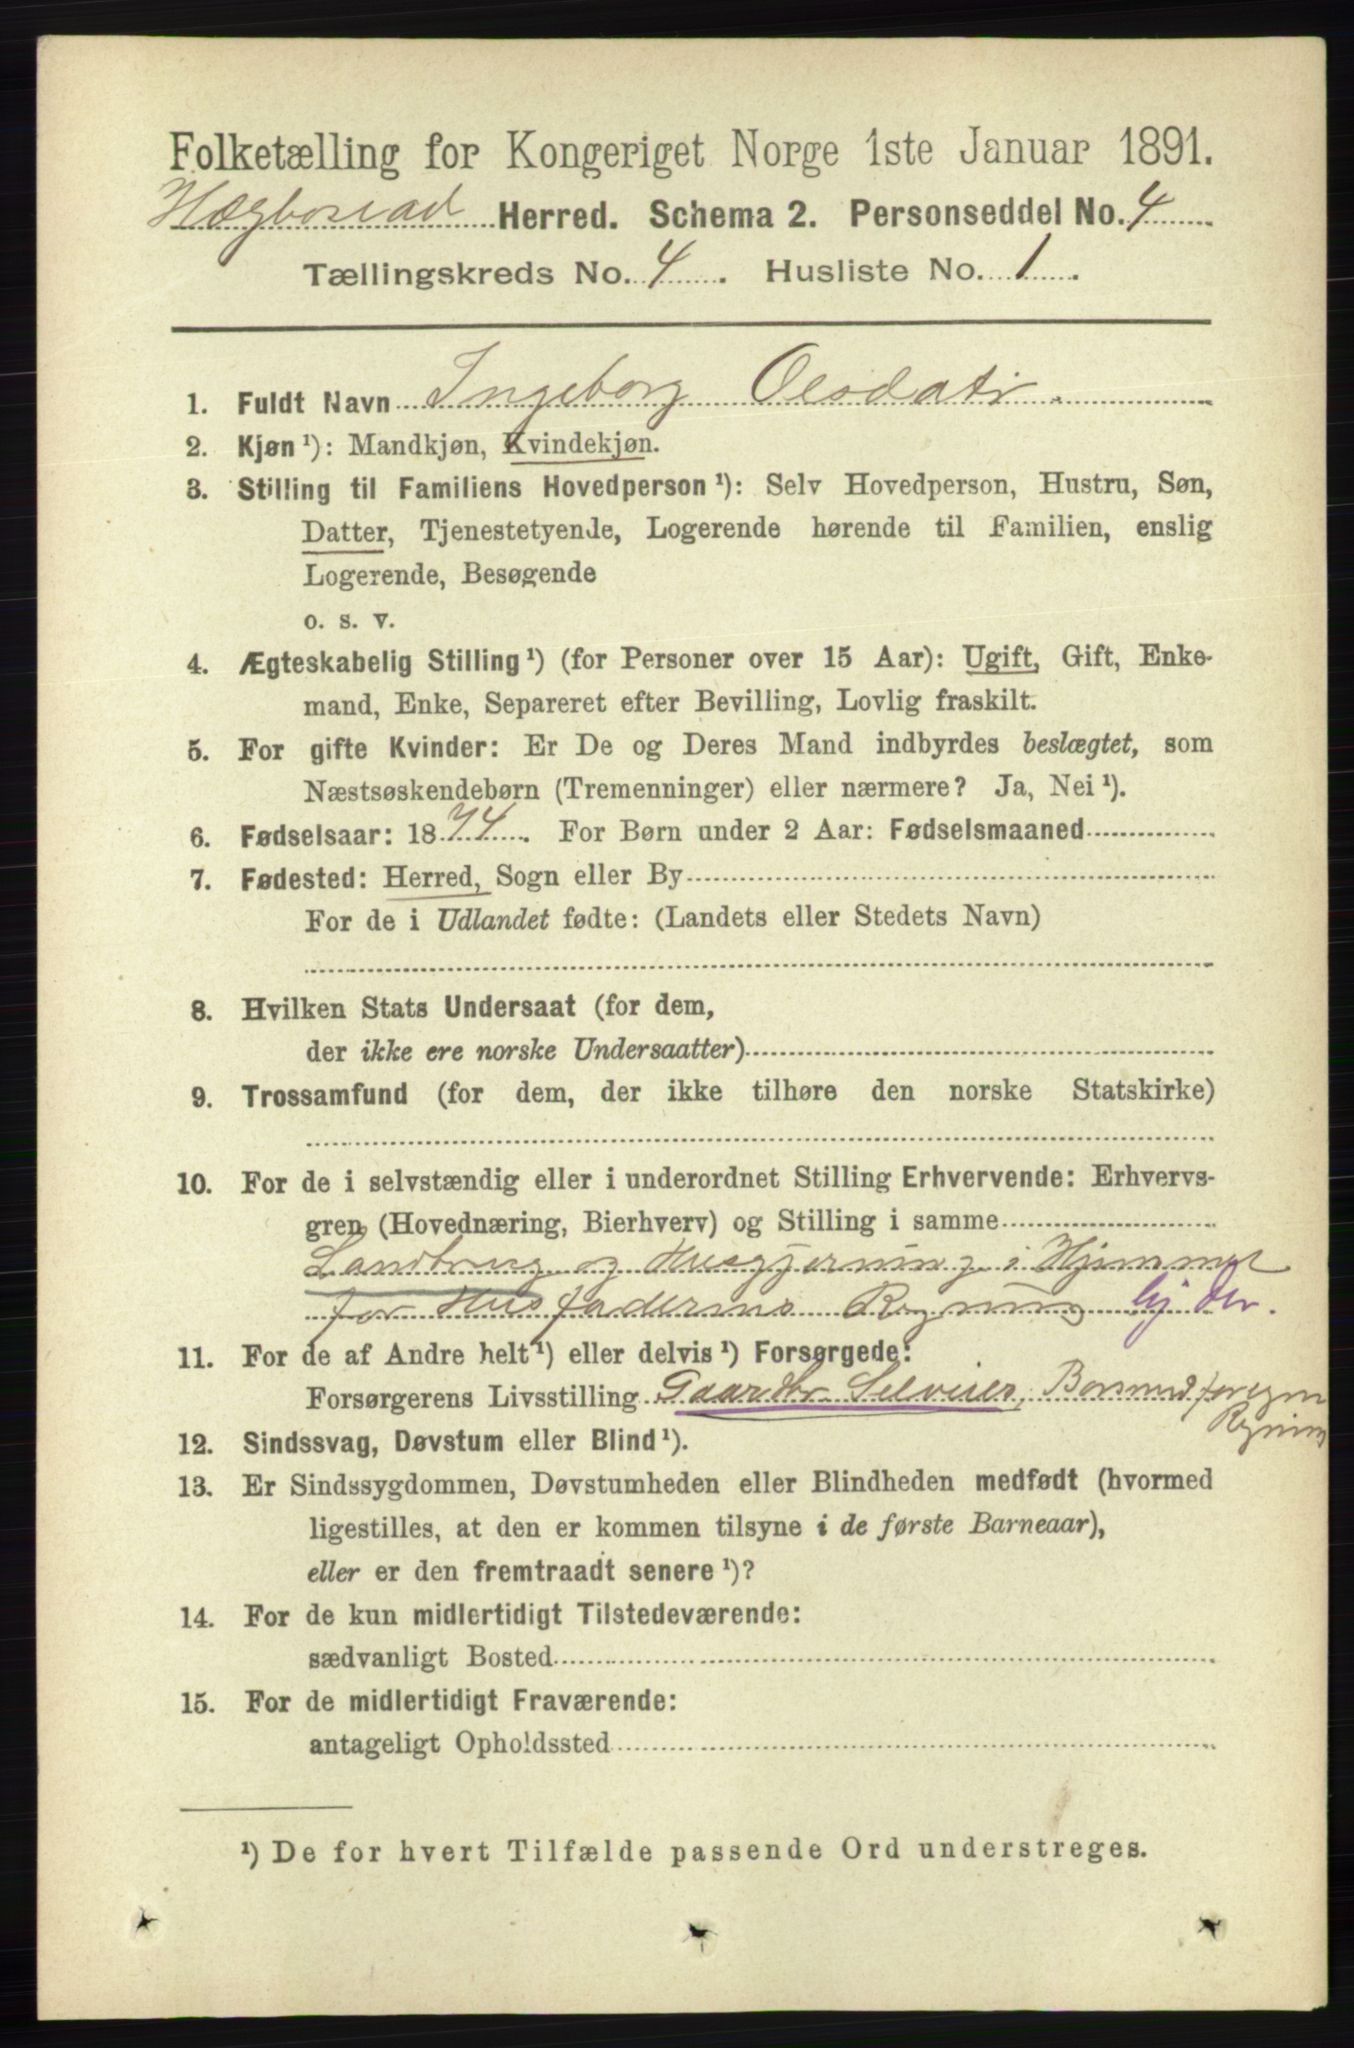 Folketælling for Kongeriget Norge 1ste Januar 1891.
Hægbostad Herred. Schema 2. Personseddel No. 4
Tællingskreds No. 4. Husliste No. 1.
1. Fuldt Navn Ingeborg Olsdatr.
2. Kjøn¹): Mandkjøn, Kvindekjøn.
3. Stilling til Familiens Hovedperson¹): Selv Hovedperson, Hustru, Søn,
Datter, Tjenestetyende, Logerende hørende til Familien, enslig
Logerende, Besøgende
o. s. v.
4. Ægteskabelig Stilling¹) (for Personer over 15 Aar): Ugift, Gift, Enke-
mand, Enke, Separeret efter Bevilling, Lovlig fraskilt.
5. For gifte Kvinder: Er De og Deres Mand indbyrdes beslægtet, som
Næstsøskendebørn (Tremenninger) eller nærmere? Ja, Nei¹).
6. Fødselsaar: 1874. For Børn under 2 Aar: Fødselsmaaned
7. Fødested: Herred, Sogn eller By
For de i Udlandet fødte: (Landets eller Stedets Navn)
8. Hvilken Stats Undersaat (for dem,
der ikke ere norske Undersaatter)
9. Trossamfund (for dem, der ikke tilhøre den norske Statskirke)
10. For de i selvstændig eller i underordnet Stilling Erhvervende: Erhvervs-
gren (Hovednæring, Bierhverv) og Stilling i samme
Landbrug og Husgjerning i Hjemmet
for Husfaderens Regning
11. For de af Andre helt¹) eller delvis¹) Forsørgede:
Forsørgerens Livsstilling Gaardbr Selveier, for egen
Regning
12. Sindssvag, Døvstum eller Blind¹).
13. Er Sindssygdommen, Døvstumheden eller Blindheden medfødt (hvormed
ligestilles, at den er kommen tilsyne i de første Barneaar),
eller er den fremtraadt senere¹)?
14. For de kun midlertidigt Tilstedeværende:
sædvanligt Bosted
15. For de midlertidigt Fraværende:
antageligt Opholdssted
¹) De for hvert Tilfælde passende Ord understreges.